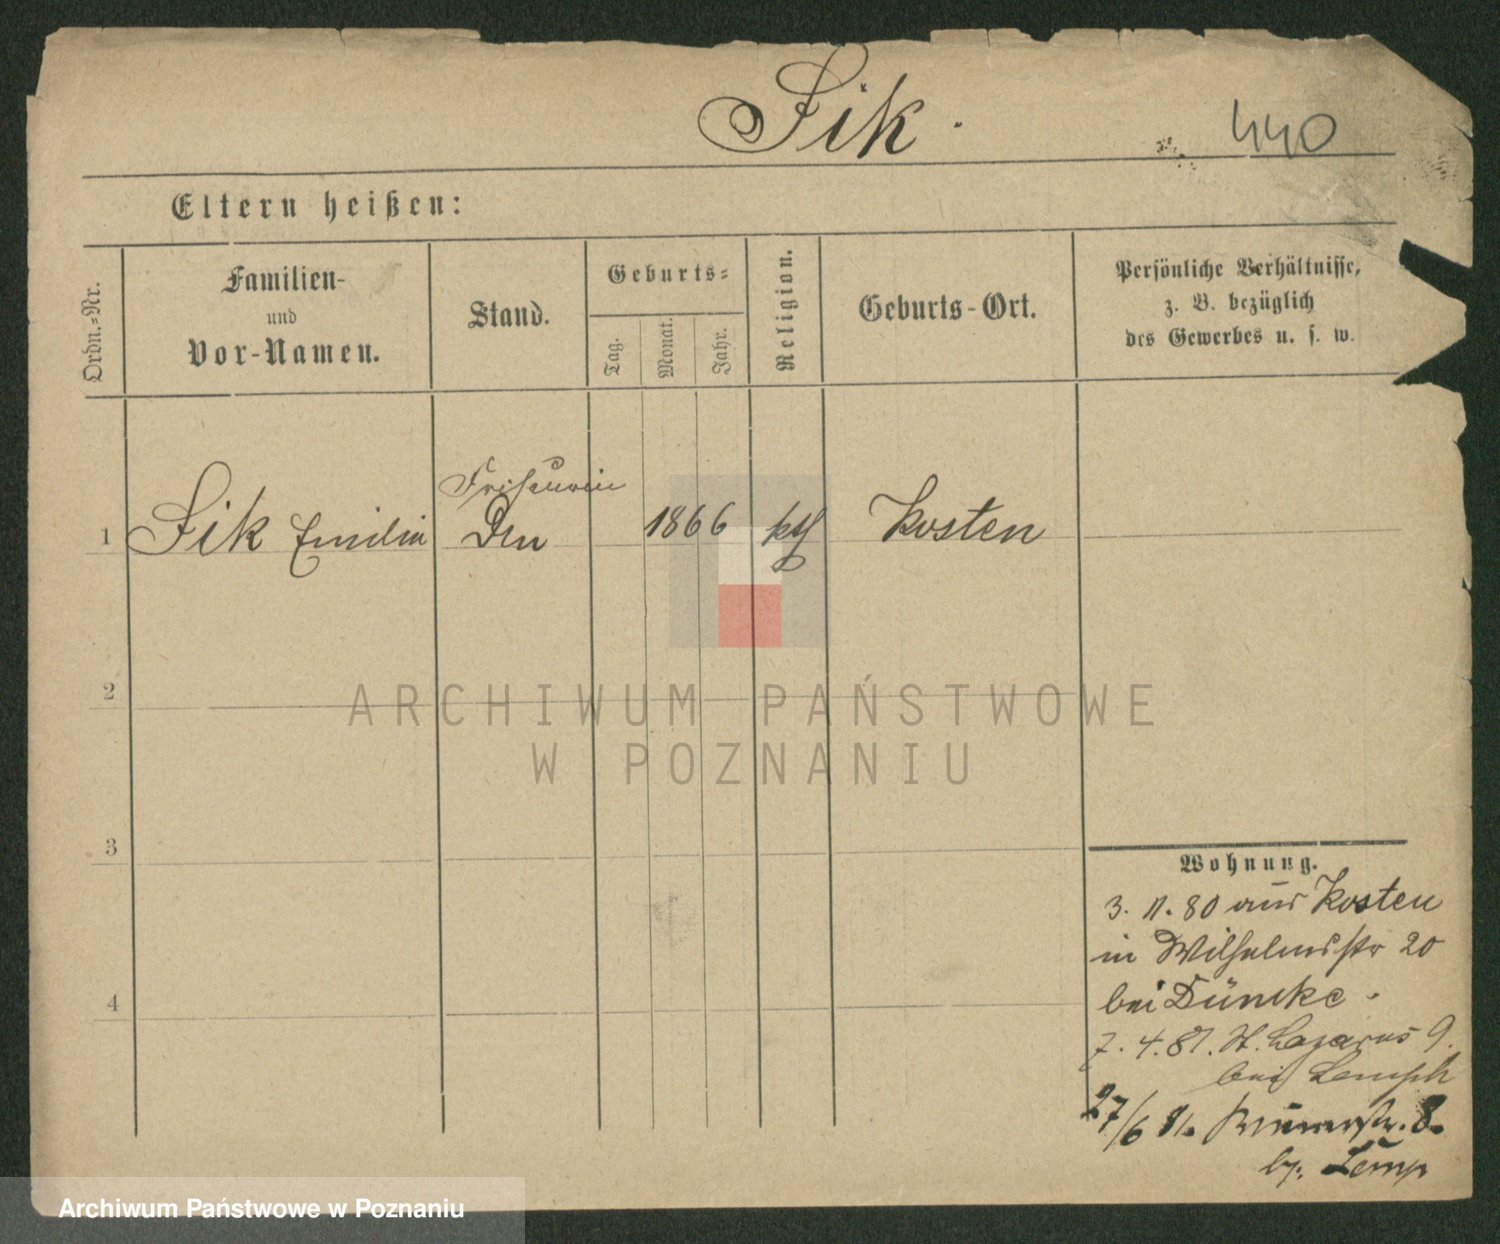 Sik.
440
Eltern heißen:
Ordn.-Nr.
Familien-
und
Vor-Namen.
Stand.
Geburts-
Tag.
Monat.
Jahr.
Religion.
Geburts-Ort.
Persönliche Verhältnisse,
z. B. bezüglich
des Gewerbes u. s. w.
Friseurin
1 Sik Emilie 1866 kth Kosten
2
3
4
Wohnung.
3. 11. 80 aus Kosten
in Wilhelmsstr 20
bei
7. 4. 81. St. Lazarus 9.
bei
27/6 81. 8.
b/.
ARCHIWUM PAŃSTWOWE
W POZNANIU
Archiwum Państwowe w Poznaniu